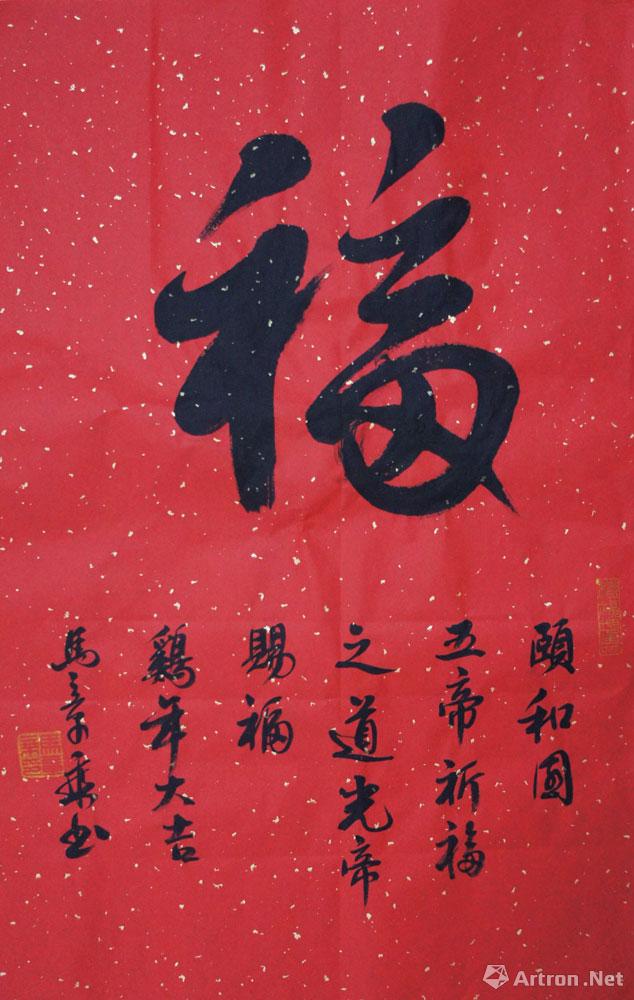 福
頤和園
五帝祈福
之道光帝
賜福
鷄年大吉
馬 书
Artron.Net